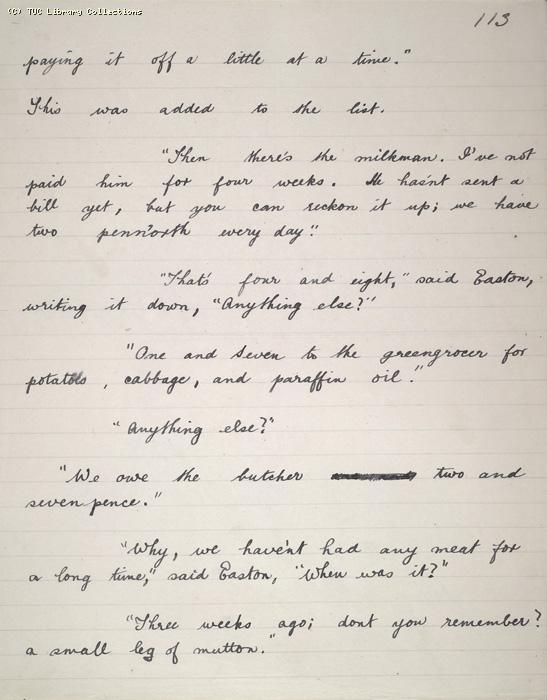 (C) TUC Library Collections
113
paying it off a little at a time."
This was added to the list.
"Then there's the milkman. I've not
paid him for four weeks. He hasn't sent a
bill yet, but you can reckon it up; we have
two penn'orth every day."
"That's four and eight," said Easton,
writing it down, "Anything else?"
"One and seven to the greengrocer for
potatos, cabbage, and paraffin oil."
"Anything else?"
"We owe the butcher two and
sevenpence."
"Why, we haven't had any meat for
a long time," said Easton, "When was it?"
"Three weeks ago; dont you remember?
a small leg of mutton."